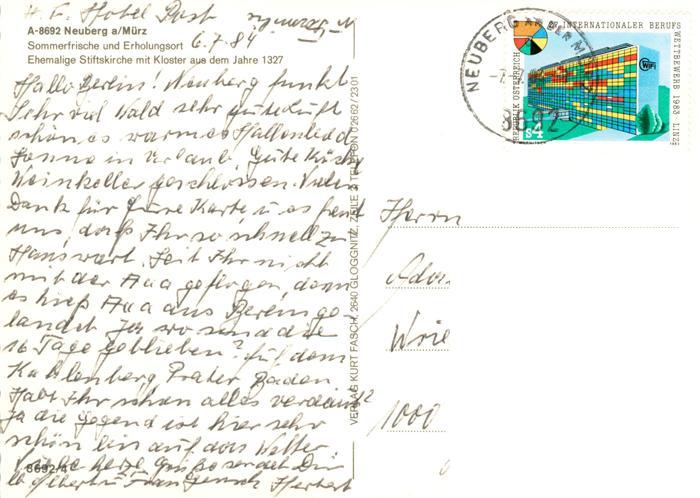 Hotel Post
A-8692 Neuberg a/Mürz
Sommerfrische und Erholungsort 6.7.84
Ehemalige Stiftskirche mit Kloster aus dem Jahre 1327
Hallo Berlin! Neuberg funkt
Sehr viel Wald sehr gute Luft
schönes warmes Hallenbad
Sonne in Urlaub. Gute Küche
Weinkeller geschlossen. Vielen
Dank für Eure Karte u. es freut
uns, daß Ihr so schnell zu
Haus wart. Seit Ihr nicht
mit der Aua geflogen, denn
es hieß Aua aus Berlin ge-
landet. Ja wo sind die
16 Tage geblieben? Auf dem
Kahlenberg Prater Baden
Habt Ihr schon alles verdaut?
Ja die Gegend ist hier sehr
schön bis auf das Wetter
herzl. Grüße sendet
Herbert
8692/4
VERLAG KURT FASCH, 2640 GLOGGNITZ, ZEILE 2, TELEFON 02662/2301
NEUBERG AN DER
8692
27. INTERNATIONALER BERUFS
WETTBEWERB 1983 LINZ
REPUBLIK ÖSTERREICH
WIFI
S4
Herrn
Wrie
1000